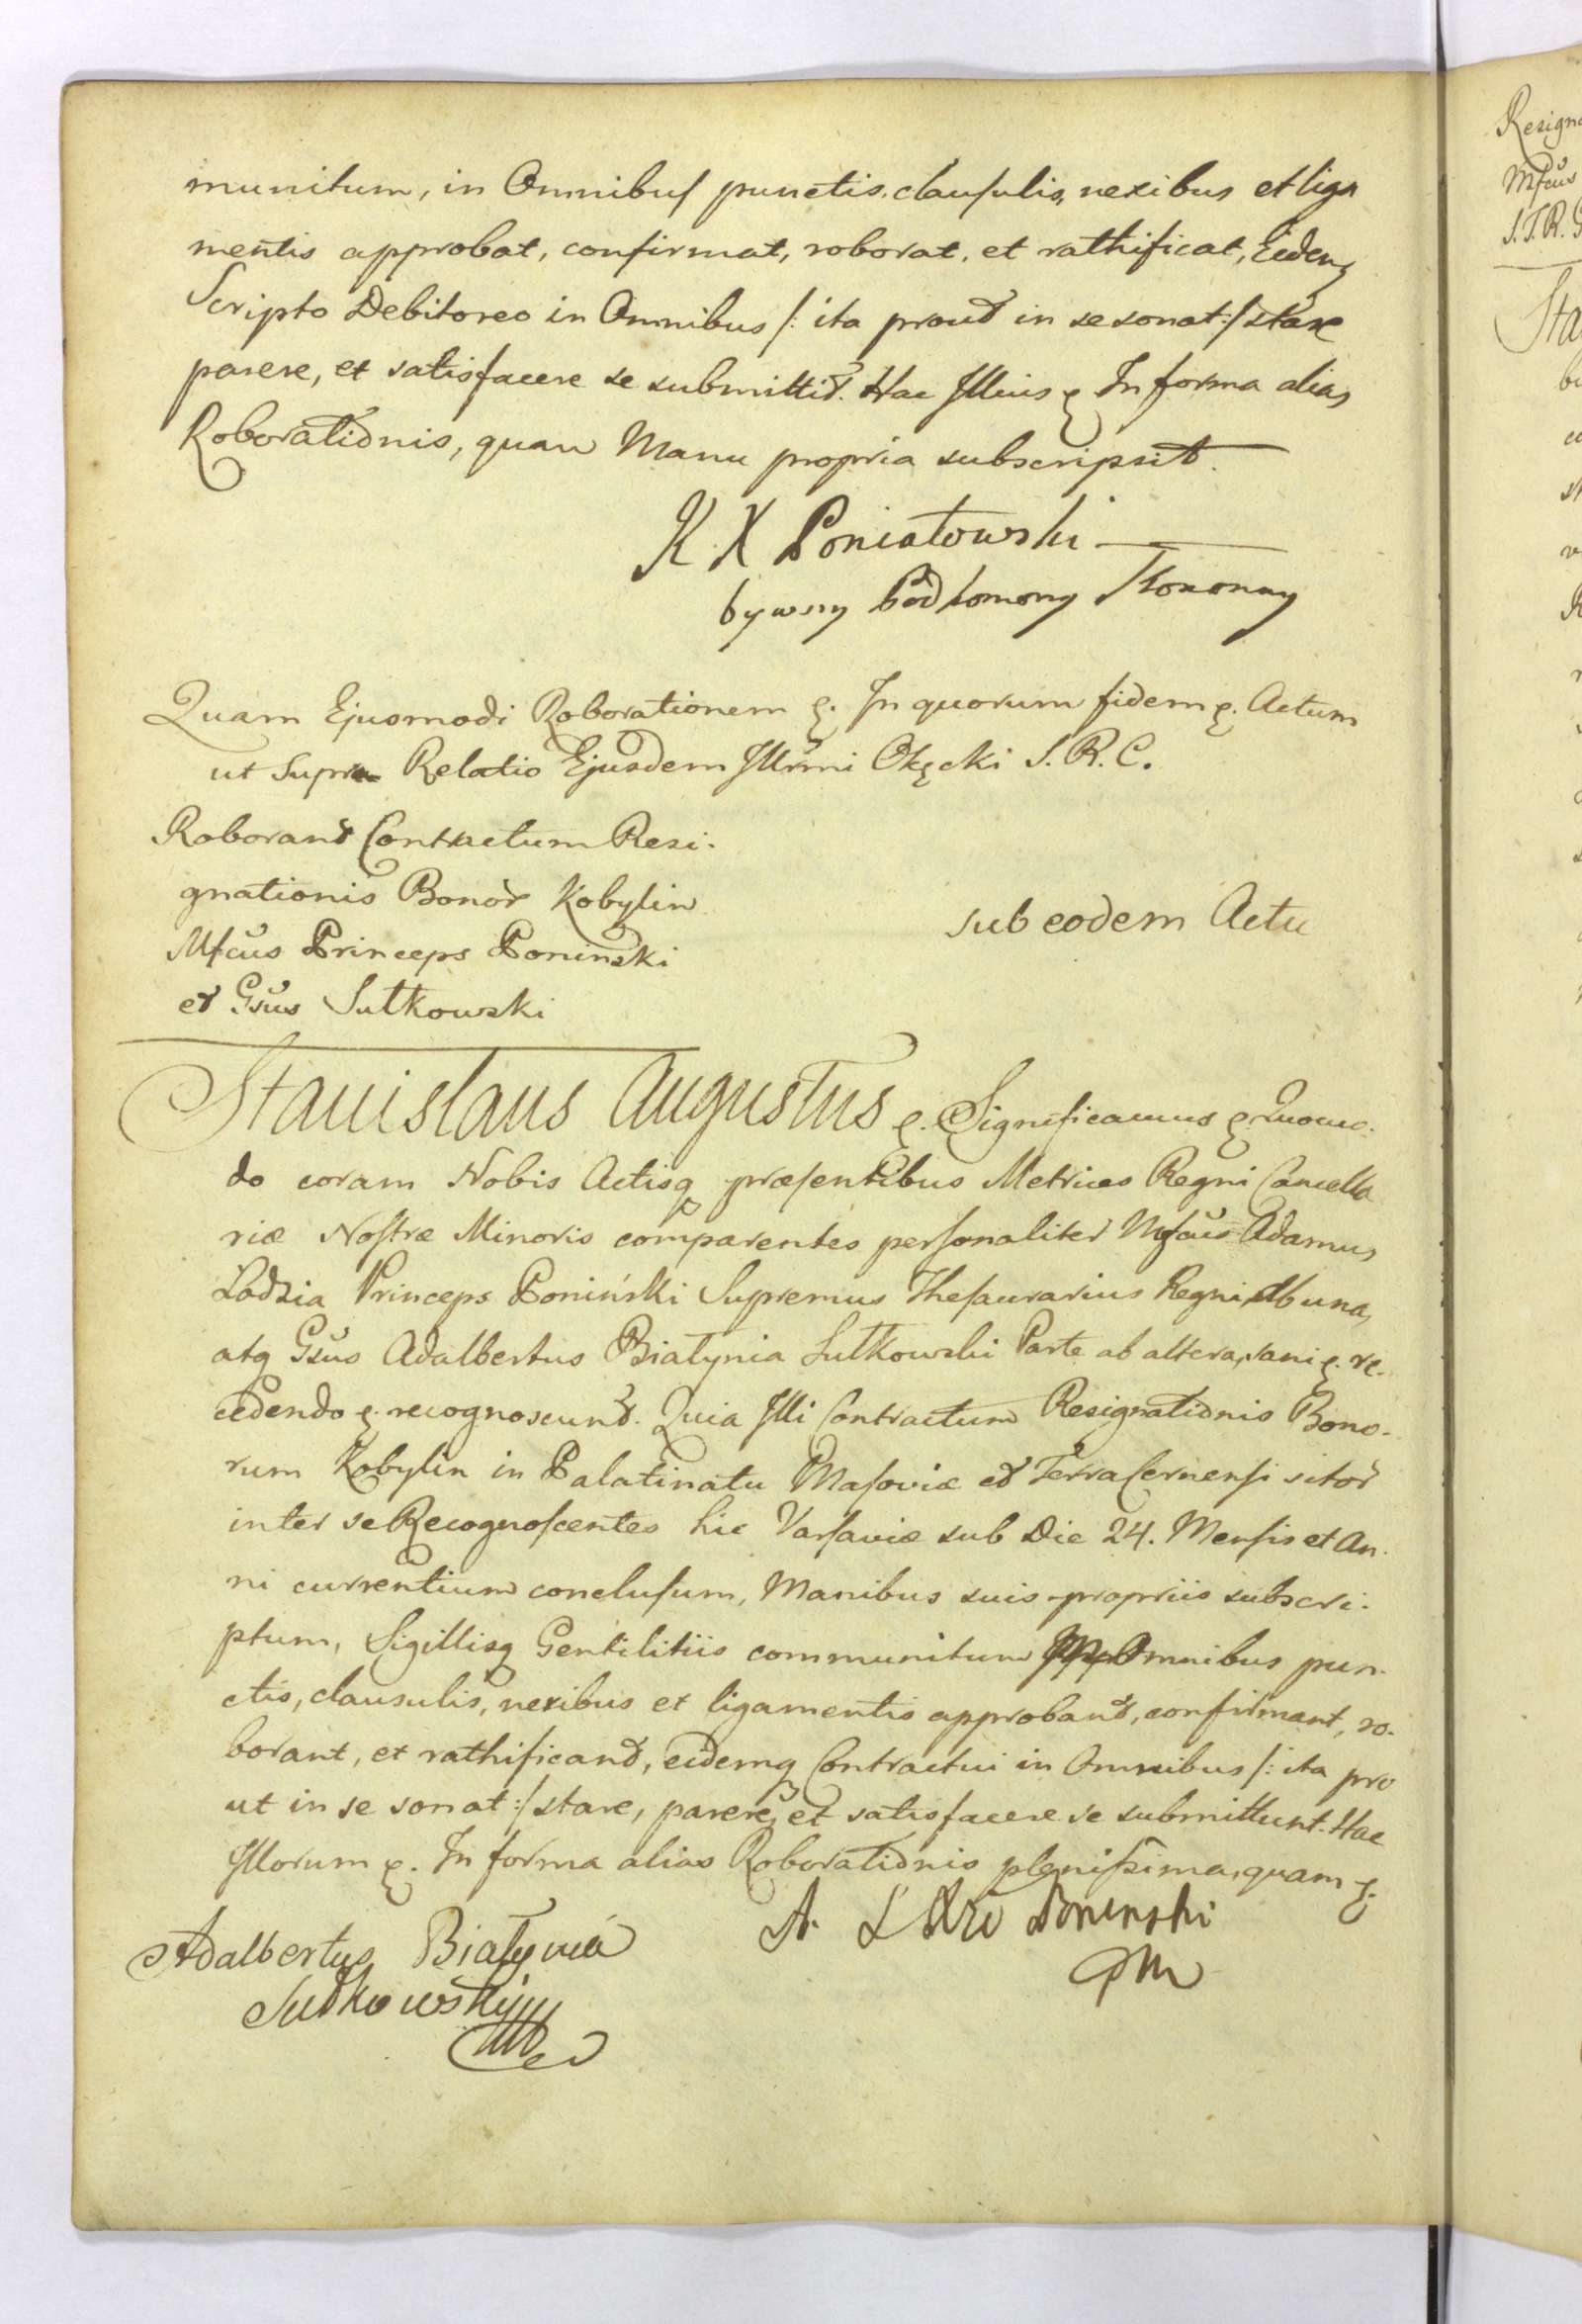 munitum, in Omnibus punctis, clausulis, nexibus et liga
mentis approbat, confirmat, roborat, et rathificat, Eidemq
Scripto Debitoreo in Omnibus /: ita prout in se sonat :/ stare
parere, et satisfacere se submittit. Hac Illius e. In forma alias
Roborationis, quam Manu propria subscripsit.
K X Poniatowski
bywszy Podkomorzy Koronny
Quam Ejusmodi Roborationem e. In quorum fidem e. Actum
ut supra Relatio Ejusdem Illrmi Okęcki S. R. C.
Roborant Contractum Resi-
gnationis Bonor Kobylin
Mfcus Princeps Poninski
et Gsus Sutkowski
sub eodem Actu
Stanislaus Augustus e. Significamus e. Quomo-
do coram Nobis Actisq præsentibus Metrices Regni Cancella
riæ Nostræ Minoris comparentes personaliter Mfcus Adamus
Lodzia Princeps Poniński Supremus Thesaurarius Regni, Ab una,
atq Gsus Adalbertus Białynia Sutkowski Parte ab altera, sani e. re-
cedendo e. recognoscunt. Quia Illi Contractum Resignationis Bono-
rum Kobylin in Palatinatu Masoviæ et Terra Cernensi sitor
inter se Recognoscentes hic Varsaviæ sub Die 24. Mensis et An-
ni currentium conclusum, Manibus suis propriis subscri-
ptum, Sigillisq Gentilitiis communitum Omnibus pun-
ctis, clausulis, nexibus et ligamentis approbant, confirmant, ro-
borant, et rathificant, eidemq Contractui in Omnibus /: ita pro
ut in se sonat :/ stare, parere, et satisfacere se submittunt. Hac
Illorum e. In forma alias Roborationis plenissima, quam e.
A. L Poninski
pm
Adalbertus Białynia
Sutkowski